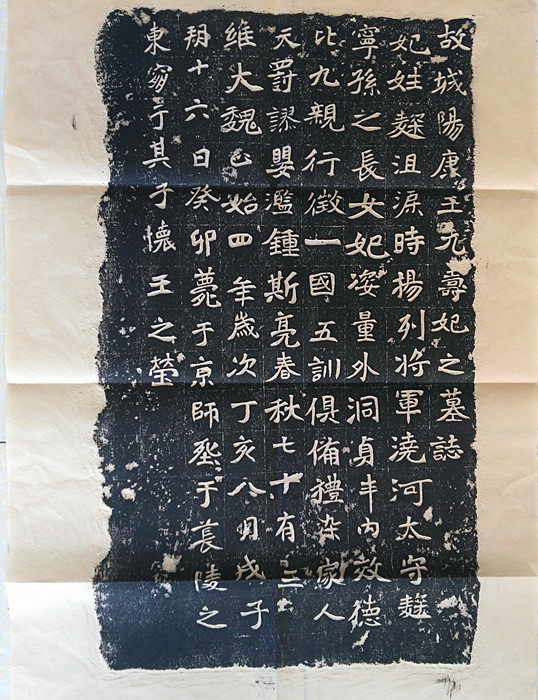 故城陽康王元壽妃之墓誌
妃姓麴沮渠時揚列將軍澆河太守麴
寧孫之長女妃姿量外洞貞丰內效德
比九親行徵一國五訓俱備禮染家人
天罸謬嬰濫鍾斯亮春秋七十有三
維大魏正始四年歲次丁亥八月戊子
朔十六日癸卯薨于京師于萇陵之
東窮于其子懷王之塋